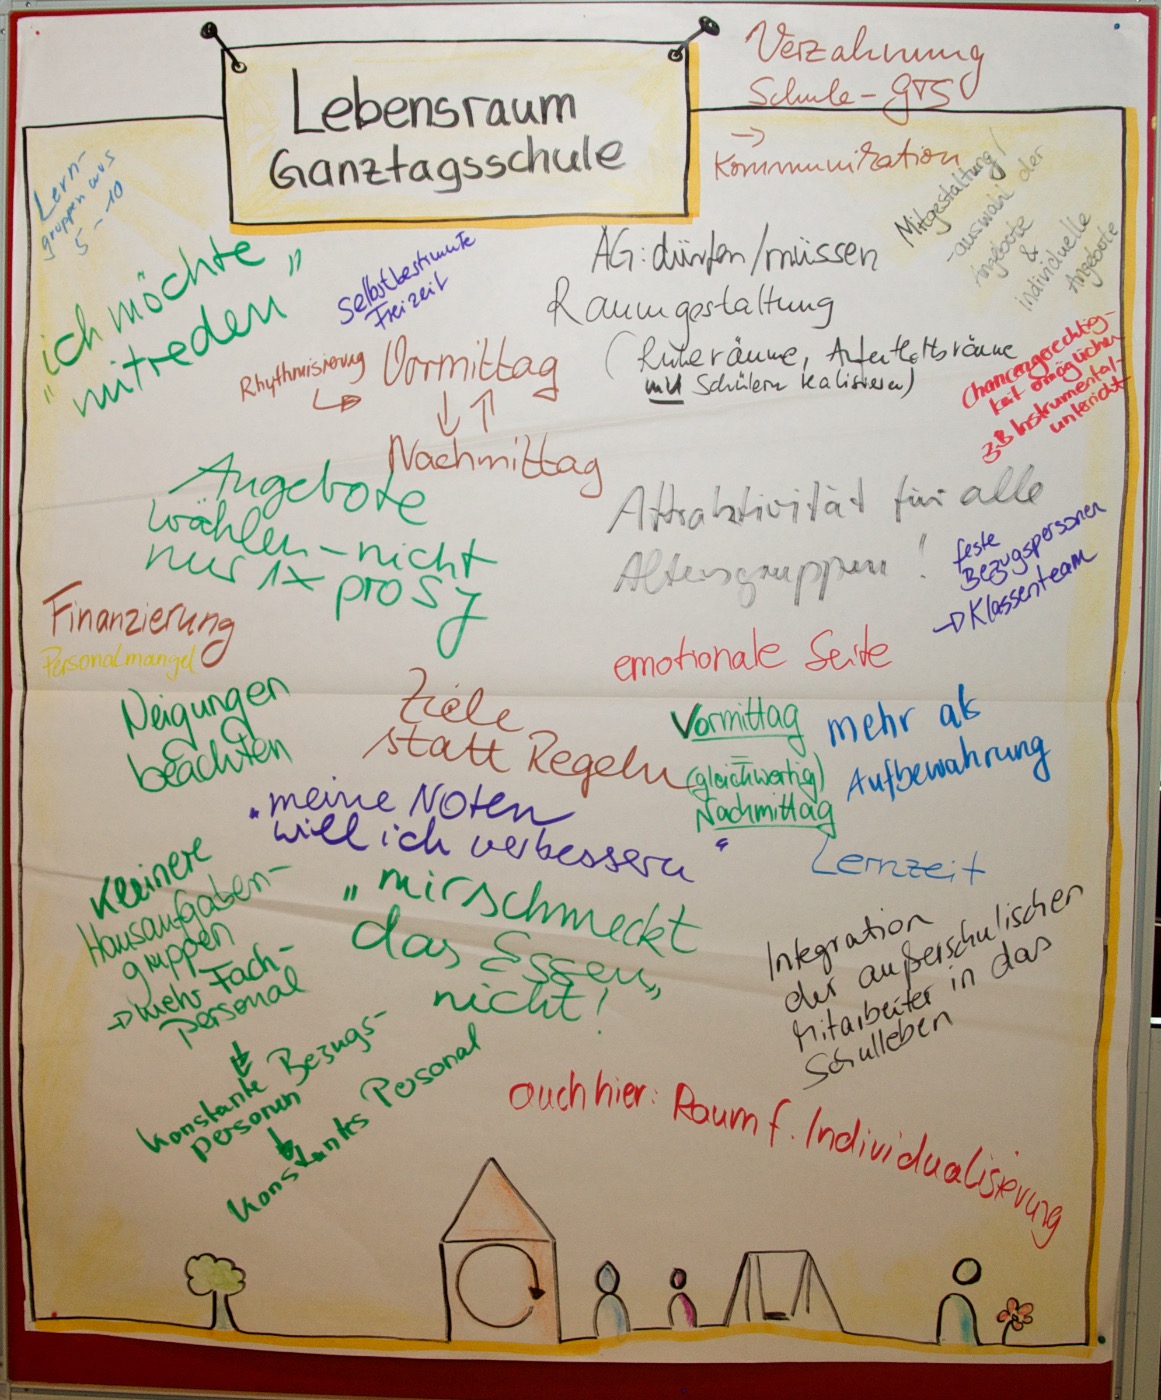 Lebensraum
Ganztagsschule
Verzahnung
Schule - GTS
→
Kommunikation
Lern-
gruppen aus
5 - 10
Mitgestaltung/
-auswahl der
Angebote
&
individuelle
Angebote
"ich möchte
mitreden"
Selbstbestimmte
Freizeit
AG: dürfen/müssen
Raumgestaltung
(Ruheräume, Aufenthaltsräume
mit Schülern realisieren)
Rhythmisierung
Vormittag
↓ ↑
Nachmittag
Chancengerechtig-
keit ermöglichen
zB Instrumental-
unterricht
Angebote
wählen - nicht
nur 1x pro SJ
Attraktivität für alle
Altersgruppen!
feste
Bezugspersonen
→ Klassenteam
Finanzierung
Personalmangel
emotionale Seite
Neigungen
beachten
Ziele
statt Regeln
Vormittag
=
(gleichwertig)
Nachmittag
mehr als
Aufbewahrung
"meine Noten
will ich verbessern"
Lernzeit
Kleinere
Hausaufgaben-
gruppen
→ mehr Fach-
personal
↓
Konstante Bezugs-
personen
↓
Konstantes Personal
"mir schmeckt
das Essen
nicht!"
Integration
der außerschulischen
Mitarbeiter in das
Schulleben
auch hier: Raum f. Individualisierung